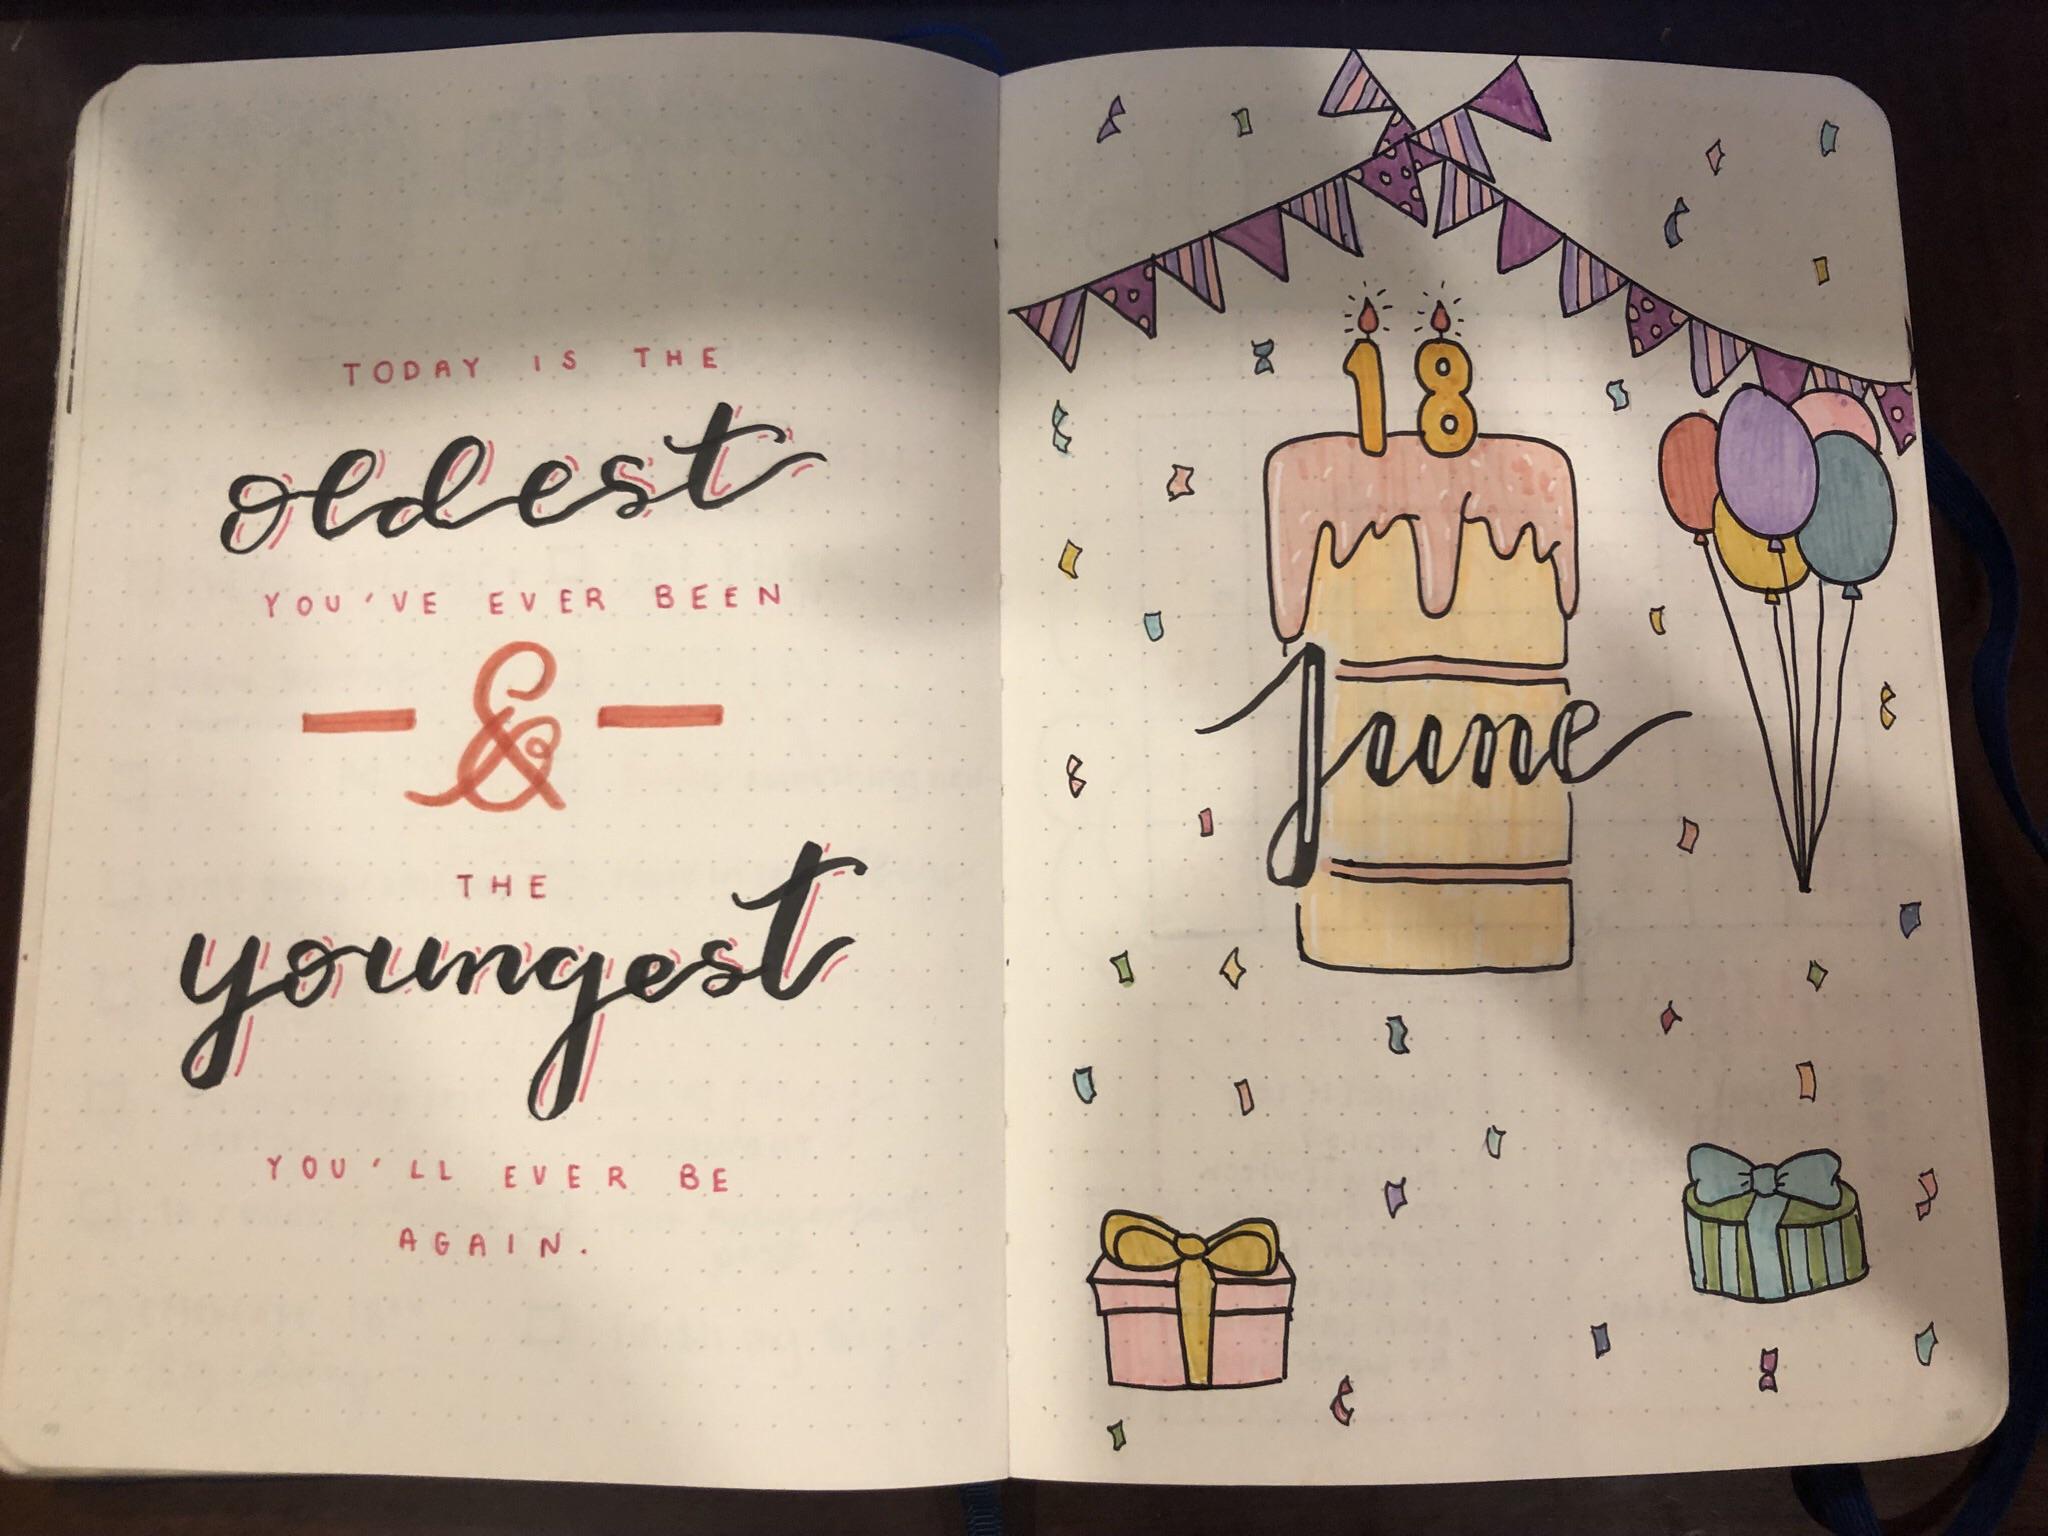 TODAY IS THE
oldest
YOU'VE EVER BEEN
&
THE
youngest
YOU'LL EVER BE
AGAIN.
18
June